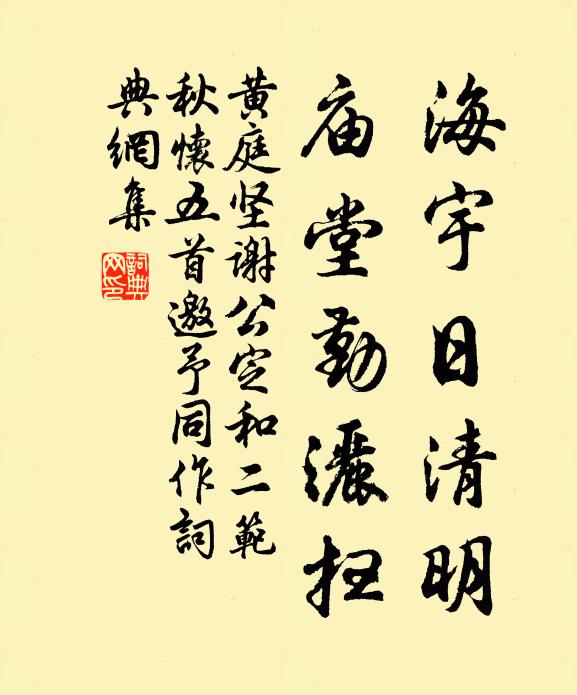 海宇日清明
庙堂勤灑扫
黄庭坚谢公定和二範
秋懷五首邀予同作詞
典網集
詞典
网印